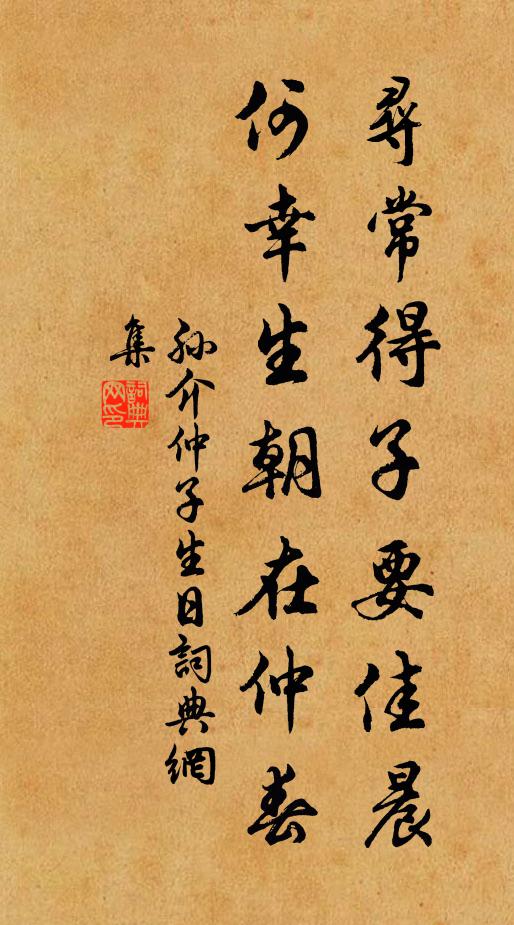 尋常得子要佳晨
何幸生朝在仲春
孫介仲子生日詞典網
集
詞典網印